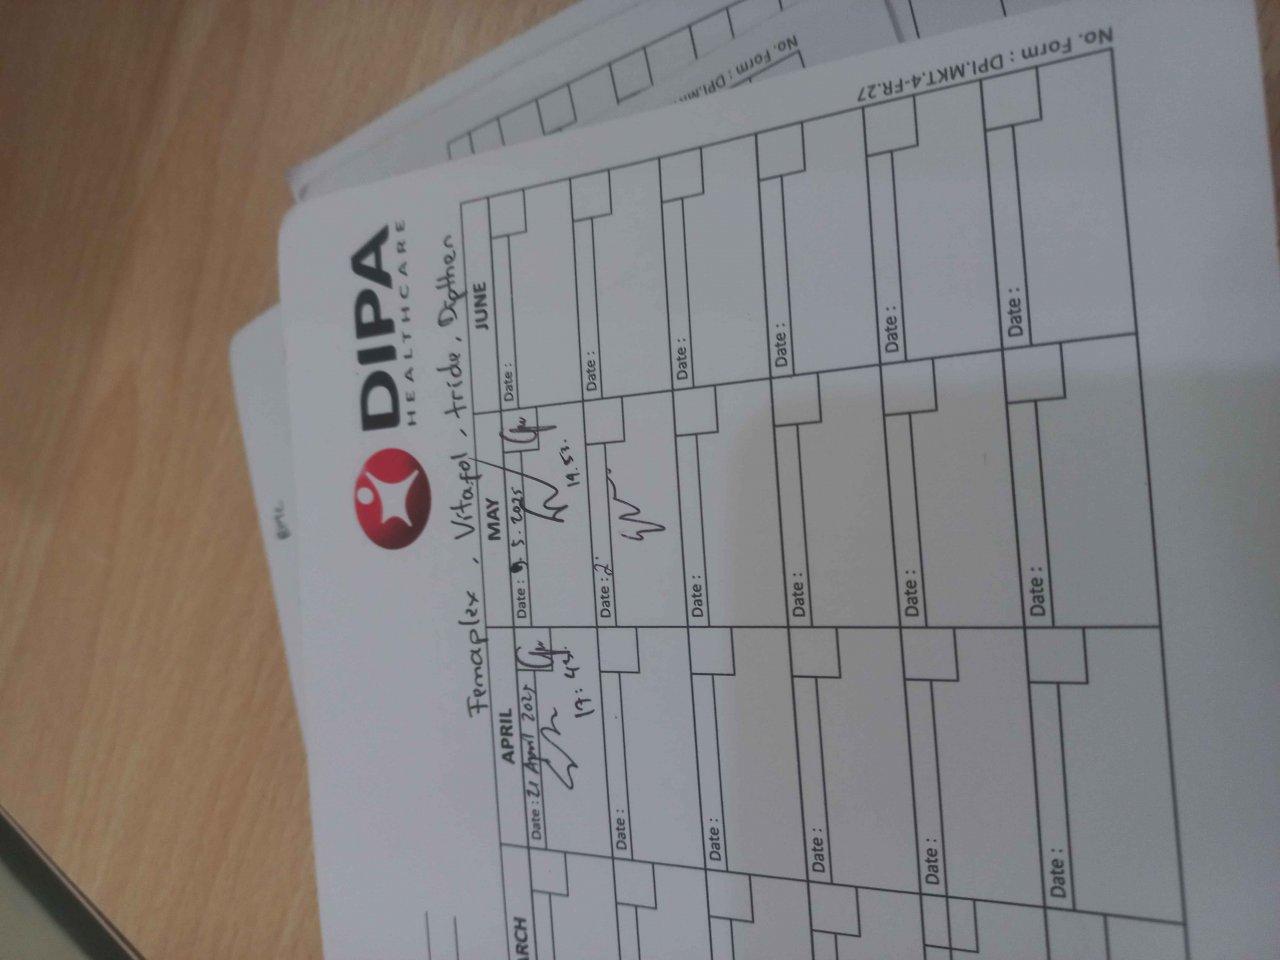 DIPA
HEALTHCARE
Femaplex, Vitafol, tride, Dipthen
ARCH
APRIL
MAY
JUNE
Date : 21 April 2025
19:45.
Date : 9.5.2025
19.53.
Date :
Date :
Date : 2
Date :
Date :
Date :
Date :
Date :
Date :
Date :
Date :
Date :
Date :
Date :
Date :
Date :
Date :
No. Form : DPI.MKT.4-FR.27
No. Form : DPI.M